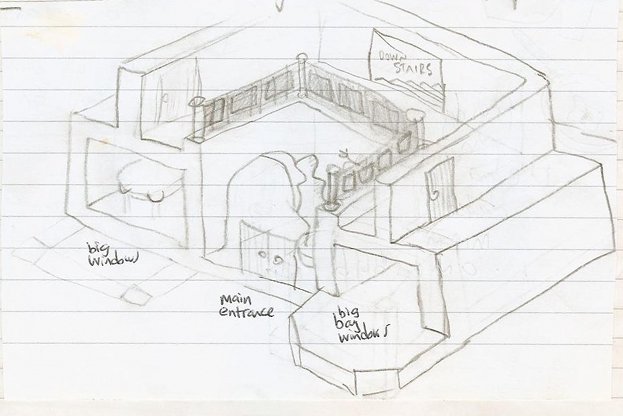 DOWN
STAIRS
big
windows
main
entrance
big
bay
windows